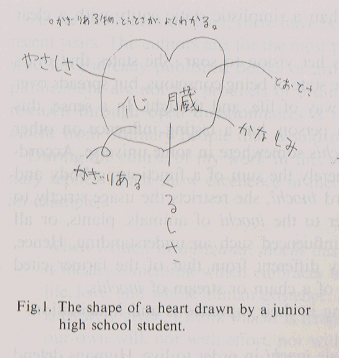 。かぎりある物、とうとさが、よくわかる。
やさしさ
とおとさ
心臓
かなしみ
かぎりある
くるしさ
Fig.1. The shape of a heart drawn by a junior
high school student.